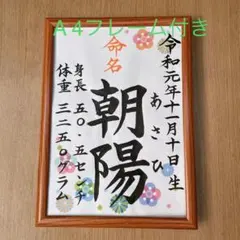 A4フレーム付き
令和元年十一月十日生
命名
あさひ
朝陽
身長 五〇.五センチ
体重 三二五〇グラム